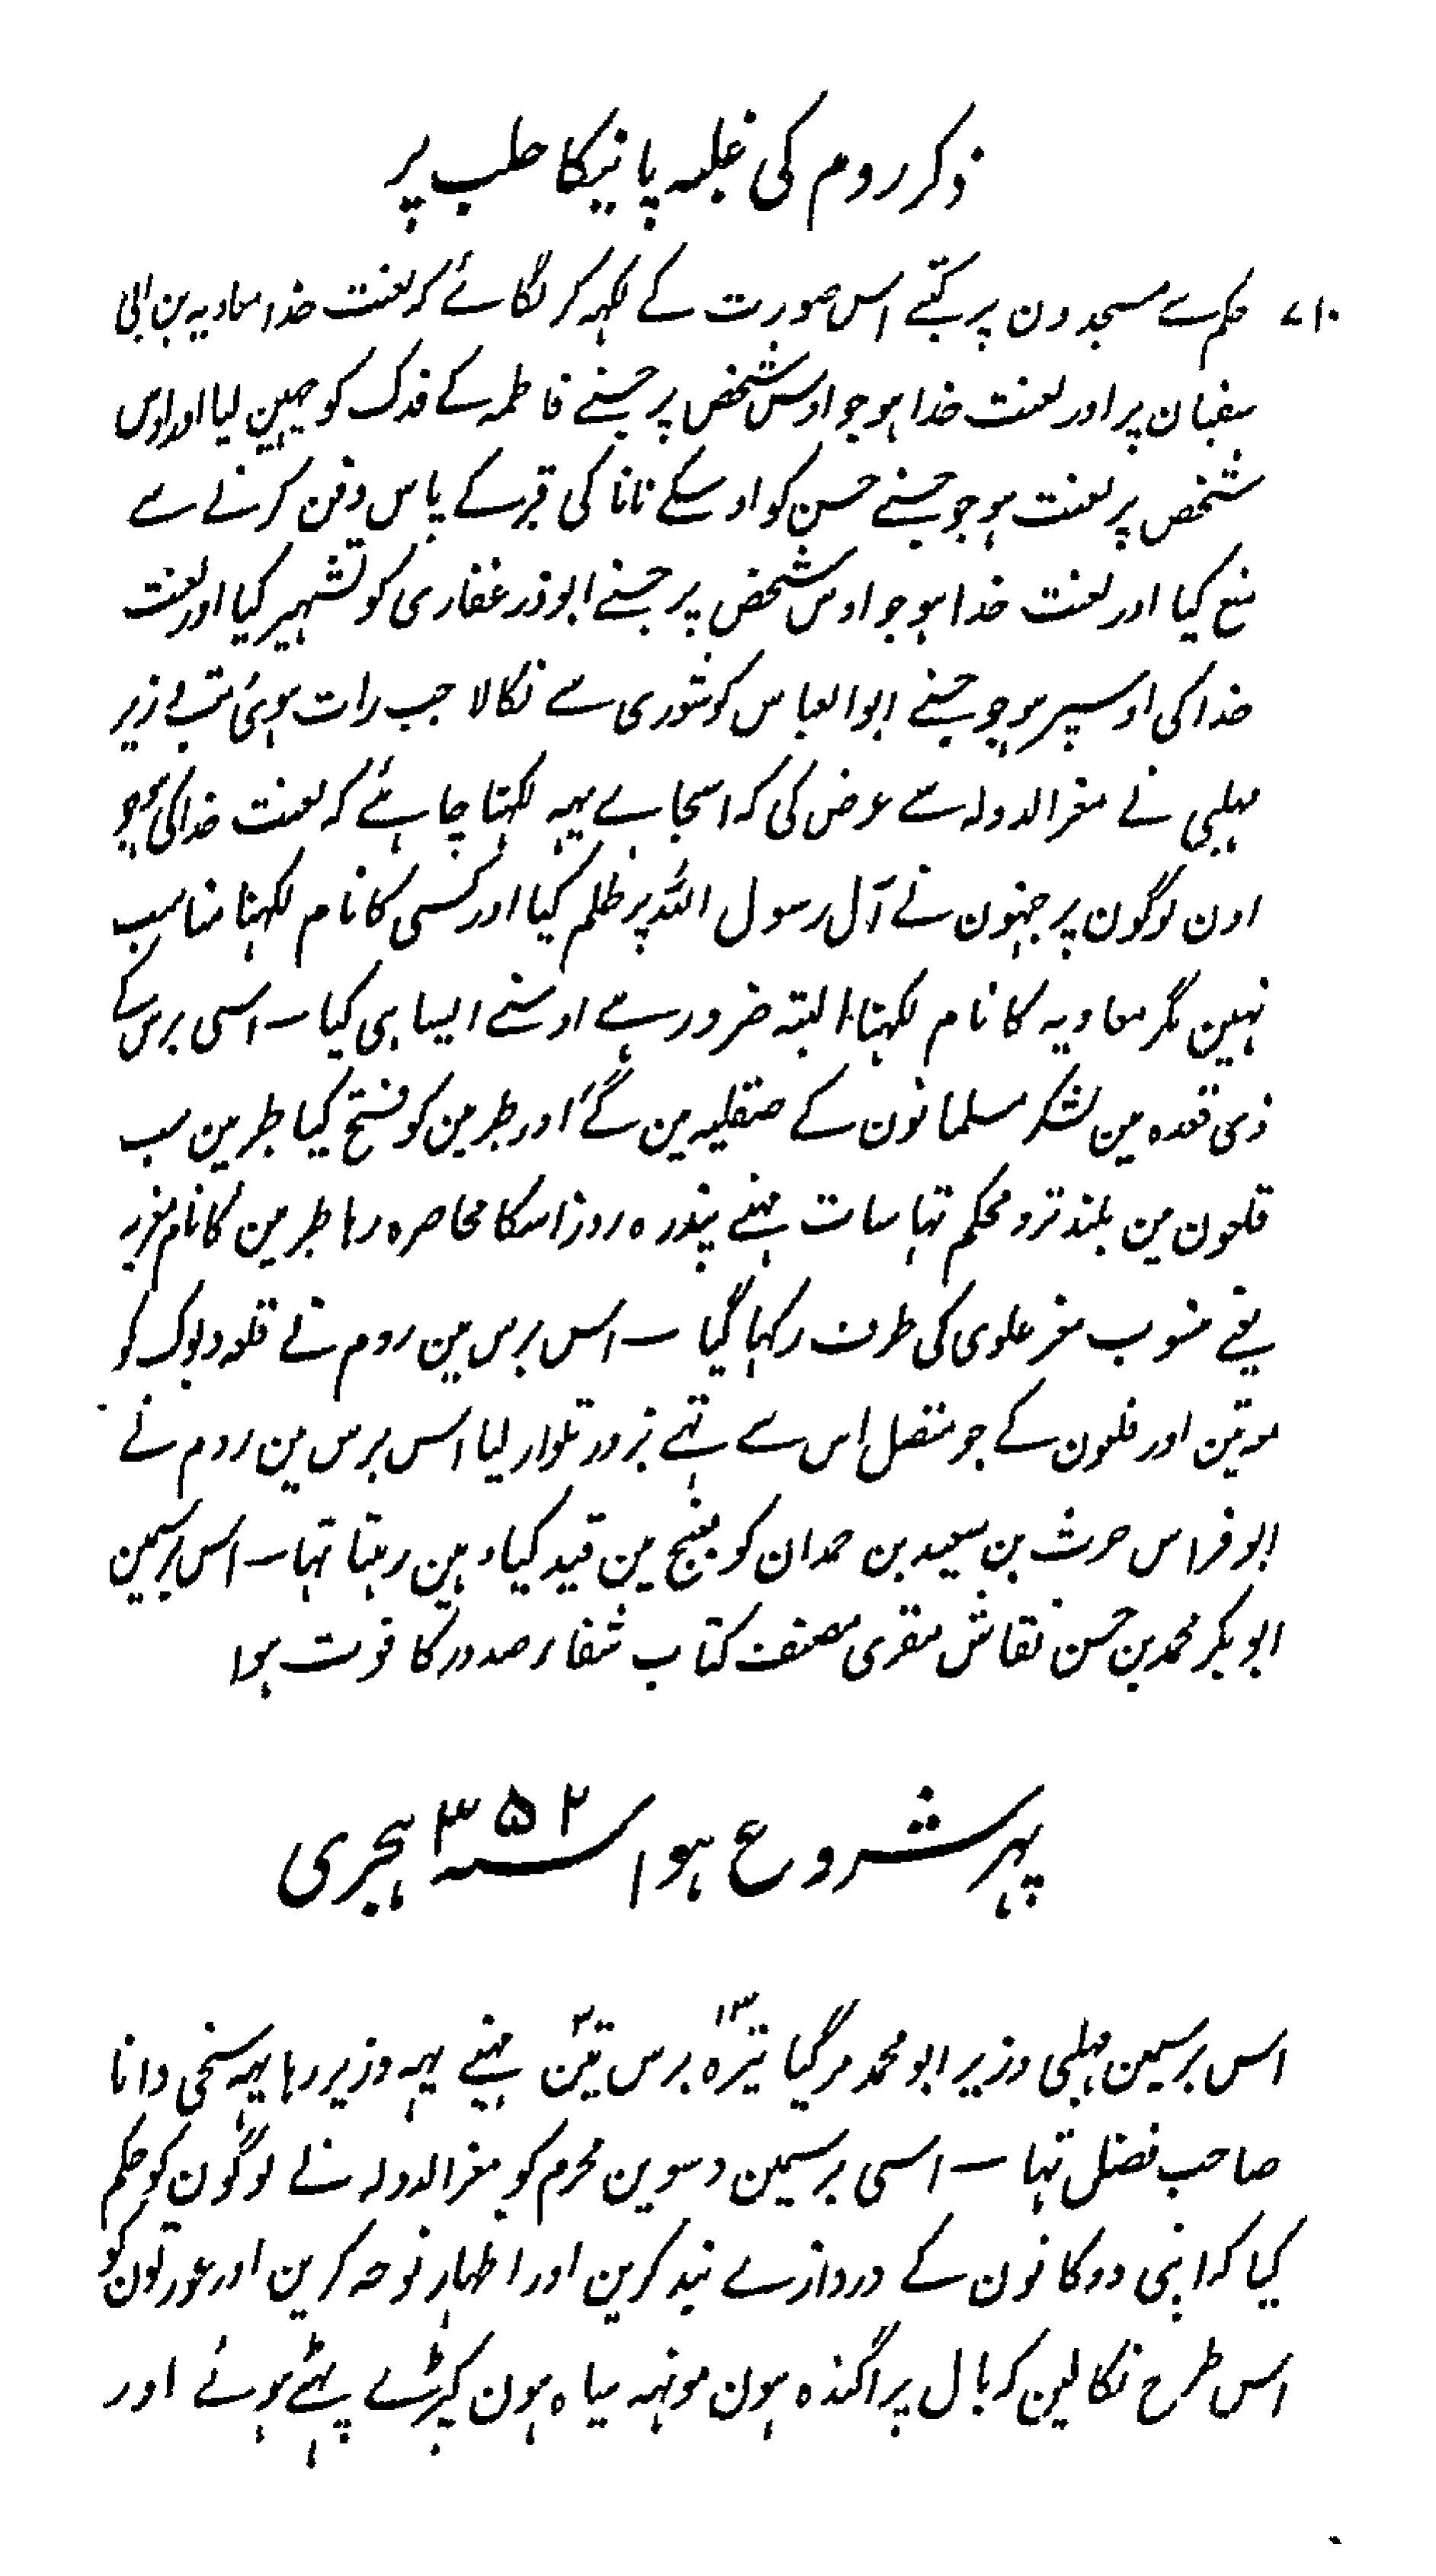 ذکر روم کی غلبہ پانیکا حلب پر
۷۱۰ حکم سے مسجدون پر کتبے اس صورت کے لکہہ کر لگائے کہ لعنت خدا معاویہ بن ابی
سفیان پر اور لعنت خدا ہو جو اوس شخص پر جسنے فاطمہ کے فدک کو چہین لیا اور اوس
شخص پر لعنت ہو جو جسنے حسن کو اوسکے نانا کی قبر کے پاس دفن کرنے سے
منع کیا اور لعنت خدا ہو جو اوس شخص پر جسنے ابوذر غفاری کو تشہیر کیا اور لعنت
خدا کی اوسپر ہو جو جسنے ابو العباس کو شوری سے نکالا جب رات ہوئی تب وزیر
مہلبی نے معز الدولہ سے عرض کی کہ اسجاے یہہ لکہنا چاہئے کہ لعنت خدا کی ہو جو
اون لوگون پر جنہون نے آل رسول اللہ پر ظلم کیا اور کسی کا نام لکہنا مناسب
نہین مگر معاویہ کا نام لکہنا البتہ ضرور ہے اوسنے ایسا ہی کیا ــ اسی برس کے
ذی قعدہ مین لشکر مسلمانون کے صقلیہ مین گئے اور طبرمین کو فتح کیا طبرمین سب
قلعون مین بلند تر و محکم تہا سات مہنے پندرہ روز اسکا محاصرہ رہا طبرمین کا نام معزیہ
یعنے منسوب معز علوی کی طرف رکہا گیا ــ اس برس مین روم نے قلعہ دلوک کو
مع تین اور قلعون کے جو متصل اس سے تہے بزور تلوار لیا اس برس مین روم نے
ابو فراس حرث بن سعید بن حمدان کو منبج مین قید کیا وہین رہتا تہا ــ اس برسمین
ابو بکر محمد بن حسن نقاش مقری مصنف کتاب شفاء صدور کا فوت ہوا
پہر شروع ہوا سنہ ۳۵۲ ہجری
اس برسمین مہلبی وزیر ابو محمد مر گیا تیرہ ۱۳ برس تین ۳ مہنے یہہ وزیر رہا یہہ سخی دانا
صاحب فضل تہا ــ اسی برسمین دسوین محرم کو معز الدولہ نے لوگون کو حکم
کیا کہ اپنی دوکانون کے دروازے بند کرین اور اظہار نوحہ کرین اور عورتون کو
اس طرح نکالین کہ بال پراگندہ ہون مونہہ سیاہ ہون کپڑے پہٹے ہوئے اور